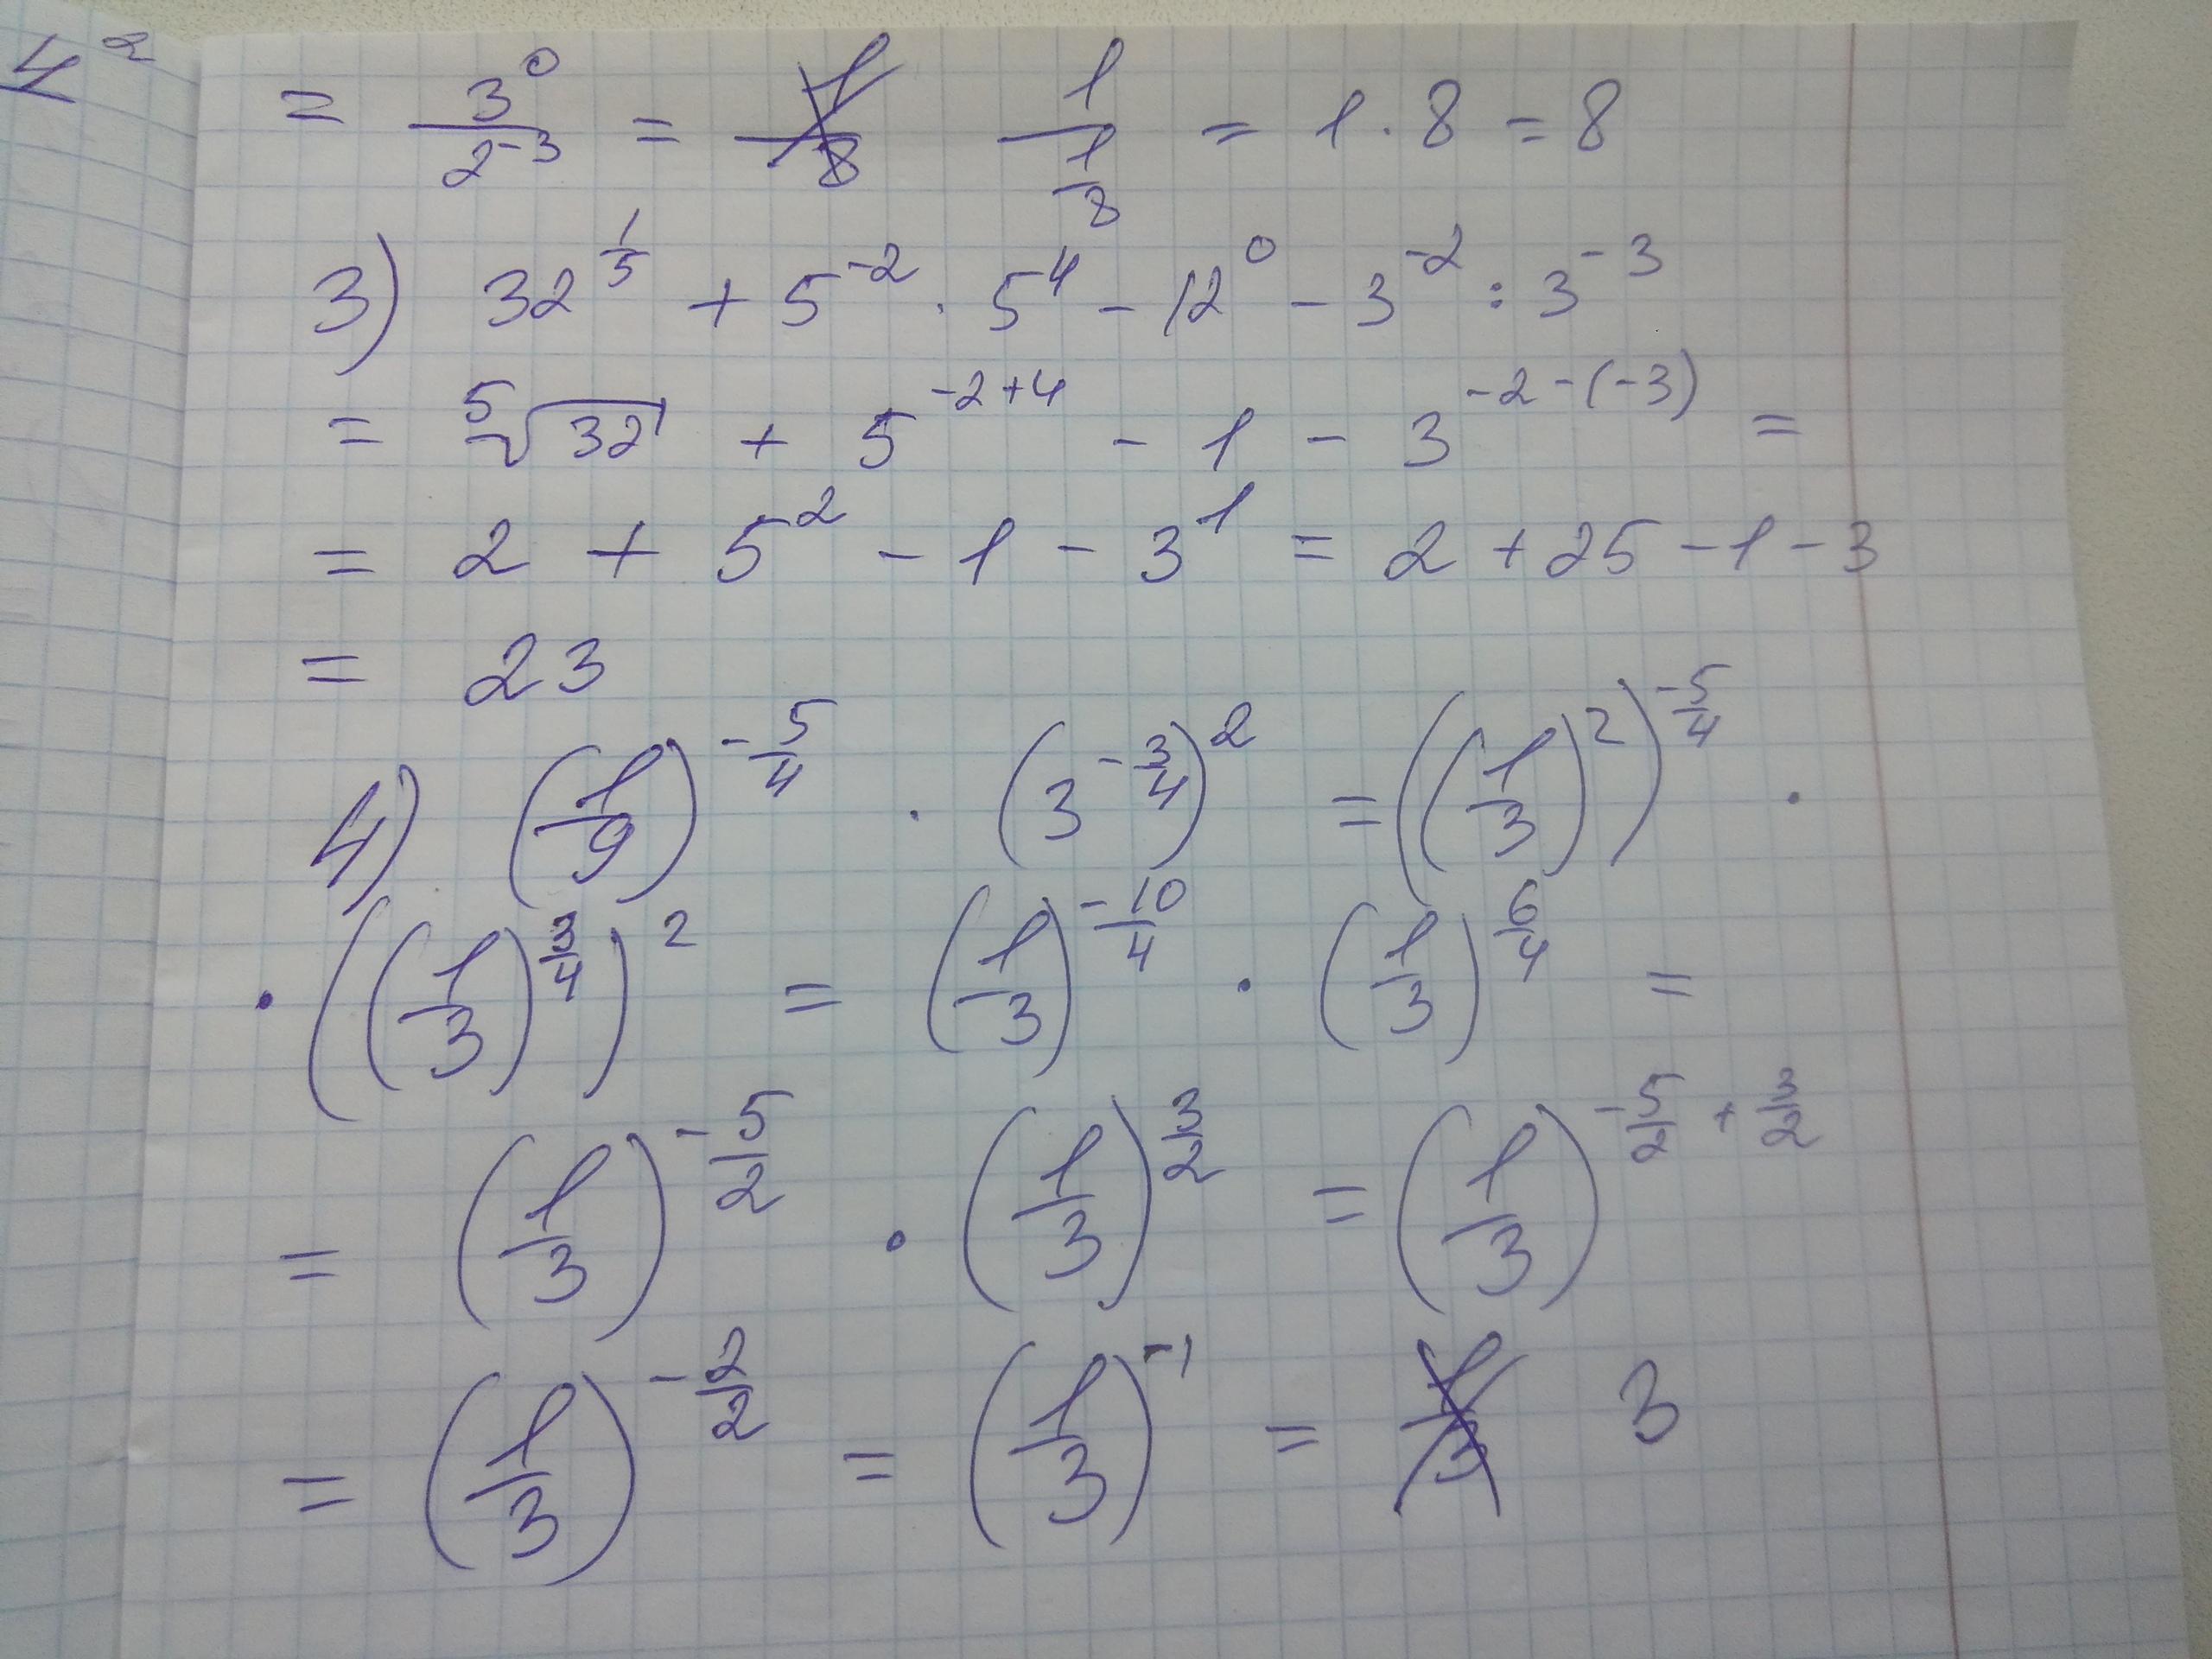 4²
= 3⁰/2⁻³ = 1/8 1/(1/8) = 1 · 8 = 8
3) 32^(1/5) + 5⁻² · 5⁴ - 12⁰ - 3⁻² : 3⁻³
= ⁵√32¹ + 5^(-2+4) - 1 - 3^(-2-(-3)) =
= 2 + 5² - 1 - 3¹ = 2 + 25 - 1 - 3
= 23
4) (1/9)^(-5/4) · (3^(-3/4))² = ((1/3)²)^(-5/4) ·
· ((1/3)^(3/4))² = (1/3)^(-10/4) · (1/3)^(6/4) =
= (1/3)^(-5/2) · (1/3)^(3/2) = (1/3)^(-5/2 + 3/2)
= (1/3)^(-2/2) = (1/3)⁻¹ = 1/3 3